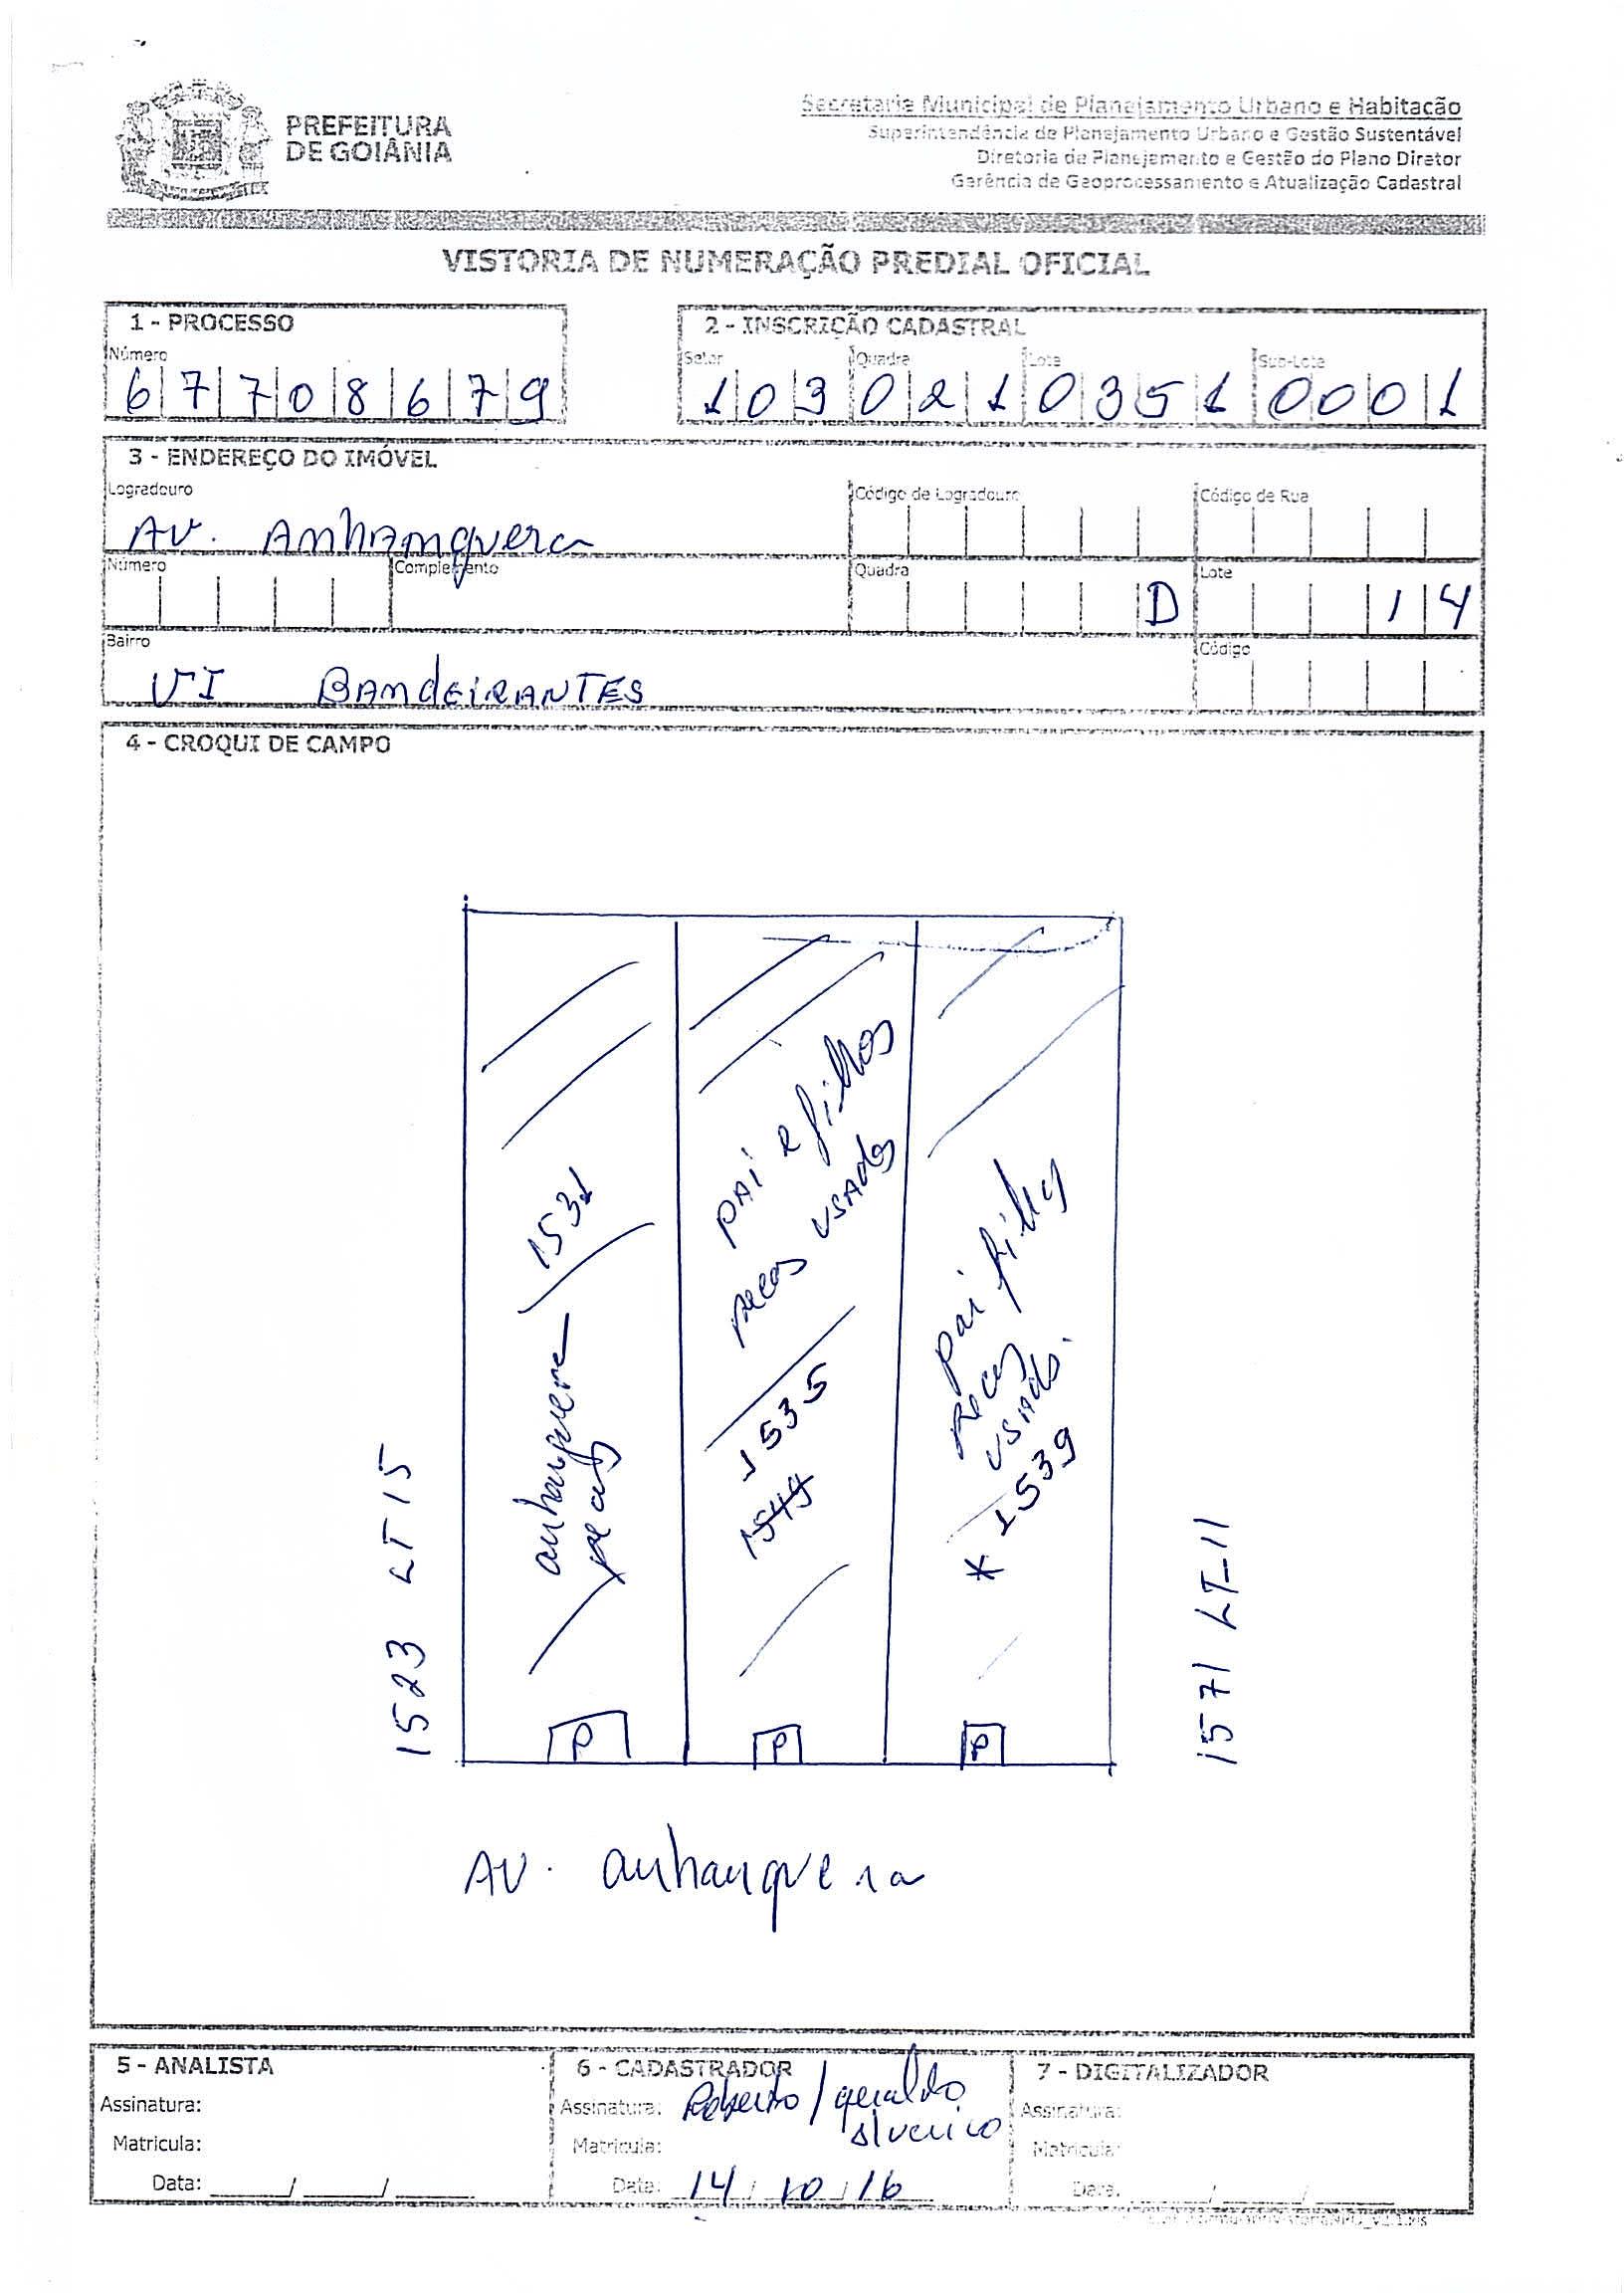 PREFEITURA
DE GOIÂNIA
Secretaria Municipal de Planejamento Urbano e Habitação
Superintendência de Planejamento Urbano e Gestão Sustentável
Diretoria de Planejamento e Gestão do Plano Diretor
Gerência de Geoprocessamento e Atualização Cadastral
VISTORIA DE NUMERAÇÃO PREDIAL OFICIAL
1 - PROCESSO
Número
6 7 7 0 8 6 7 9
2 - INSCRIÇÃO CADASTRAL
Setor Quadra Lote Sub-Lote
1 0 3 0 2 1 0 3 5 1 0 0 0 1
3 - ENDEREÇO DO IMÓVEL
Logradouro Código de Logradouro Código de Rua
Av. Anhanguera
Número Complemento Quadra Lote
D 14
Bairro Código
VI BANdEIRANTES
4 - CROQUI DE CAMPO
1523 LT 15
1531
anhanguera
pecas
pai e filhos
pecas usados
1535
1549
pai filhos
pecas
usado.
* 1539
1571 LT-11
P P P
AV. anhanguera
5 - ANALISTA
Assinatura:
Matricula:
Data: / /
6 - CADASTRADOR
Assinatura: Roberto / geraldo
Matricula:
Data: 14 / 10 / 16
7 - DIGITALIZADOR
Assinatura:
Matricula:
Data: / /